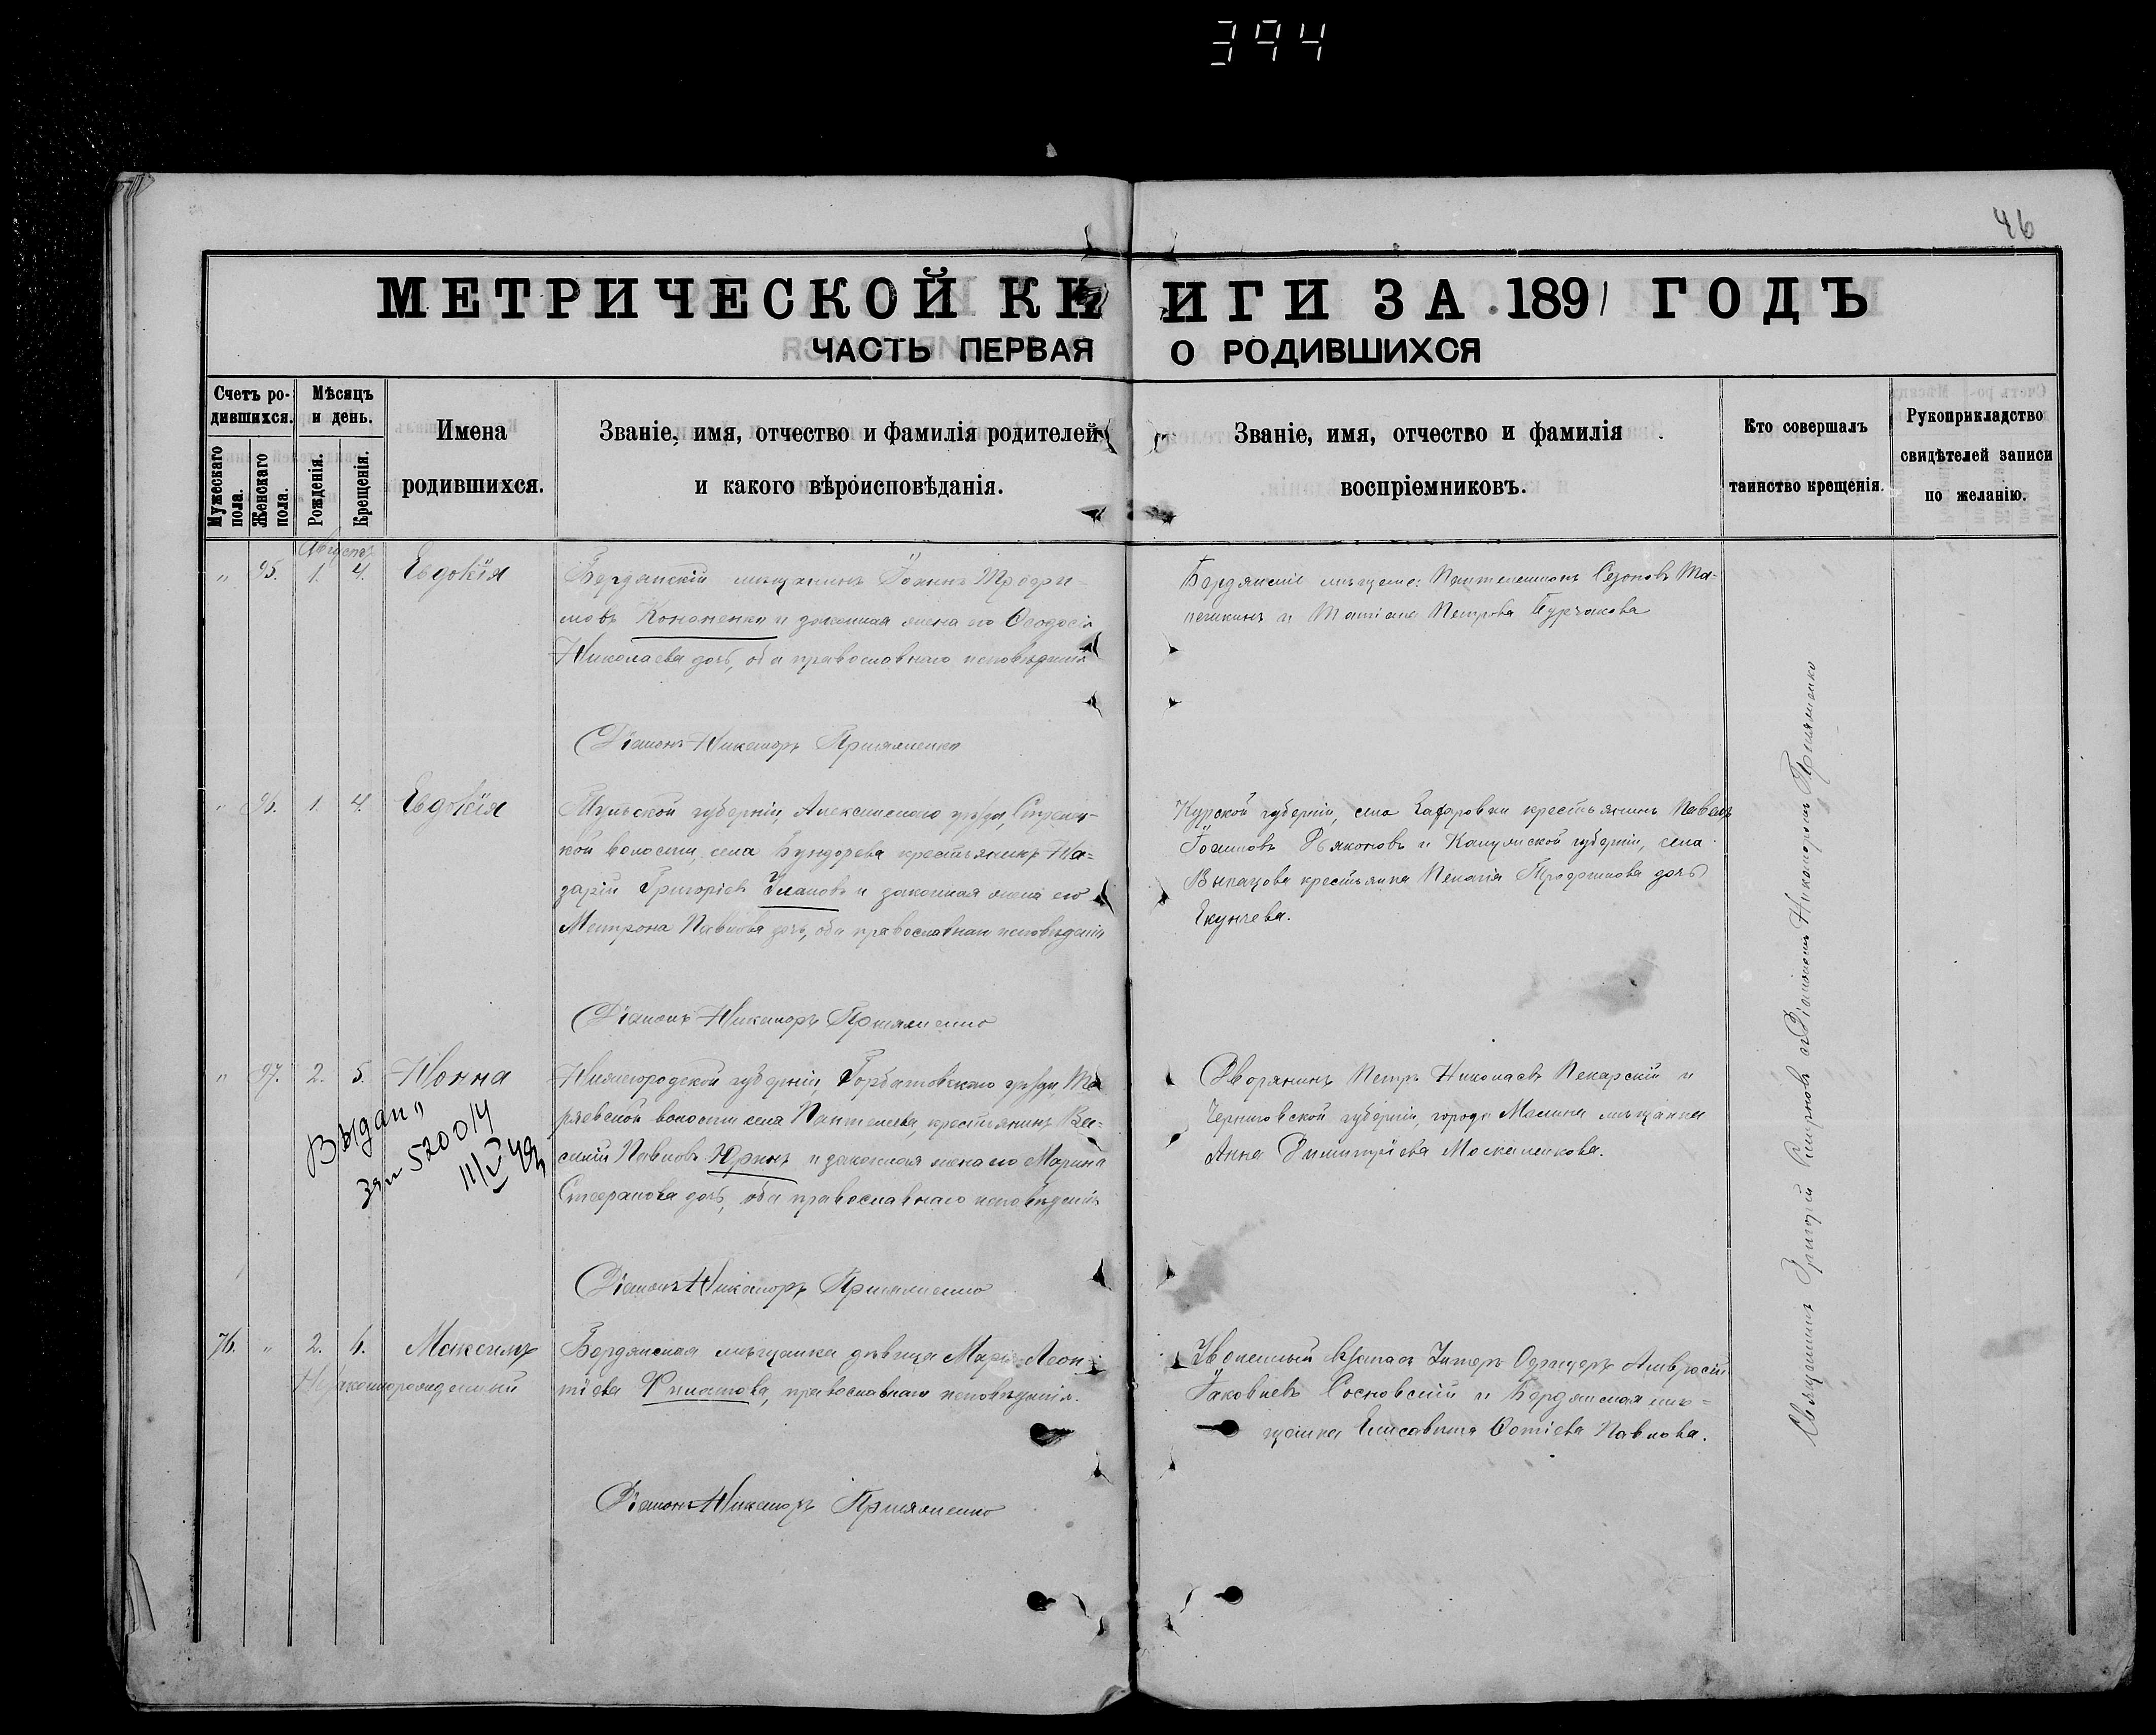 394
46
МЕТРИЧЕСКОЙ КНИГИ ЗА 1891 ГОДЪ
ЧАСТЬ ПЕРВАЯ О РОДИВШИХСЯ
Счетъ ро-
дившихся.
Мужескаго
пола.
Женскаго
пола.
Мѣсяцъ
и день.
Рожденія.
Крещенія.
Имена
родившихся.
Званіе, имя, отчество и фамилія родителей
и какого вѣроисповѣданія.
Званіе, имя, отчество и фамилія
воспріемниковъ.
Кто совершалъ
таинство крещенія.
Рукоприкладство
свидѣтелей записи
по желанію.
Августъ
" 95. 1. 4. Евдокія
Бердянскій мѣщанинъ Іоаннъ Трофи-
мовъ Кононенко и законная жена его Ѳеодосія
Николаева дочь, оба православнаго исповѣданія
Бердянскіе мѣщане: Пантелеимонъ
и Татіана Петрова Бурчакова
Діаконъ Никаноръ
" 96. 1. 4. Евдокія
Тульской губерніи, Алексинскаго уѣзда,
волости, села Бундорева крестьянинъ На-
зарій Григоріевъ Улановъ и законная жена его
Матрона Павлова дочь, оба православнаго исповѣданія
Курской губерніи, села крестьянинъ Павелъ
Іоанновъ Дьяконовъ и Калужской губерніи, села
крестьянка Пелагія Трофимова дочь
Діаконъ Никаноръ
" 97. 2. 5. Нонна
Нижегородской губерніи Горбатовскаго уѣзда,
волости села Пантелеева, крестьянинъ Ва-
силій Павловъ Юринъ и законная жена его Марина
Стефанова дочь, оба православнаго исповѣданія
Дворянинъ Петръ Николаевъ Пекарскій и
Черниговской губерніи, города Мглина мѣщанка
Анна Димитріева Москаленкова.
Выдан"
520014
11/V 49
Діаконъ Никаноръ
76. " 2. 6. Максимъ
Незаконнорожденный
Бердянская мѣщанка дѣвица Марія Леон-
тіева Филатова, православнаго исповѣданія.
Уволенный въ запасъ Унтеръ Офицеръ Амвросій
Іаковлевъ Сосновскій и Бердянская мѣ-
щанка Елисавета Фотіева Павлова.
Діаконъ Никаноръ
Священникъ Григорій съ Діакономъ Никаноромъ